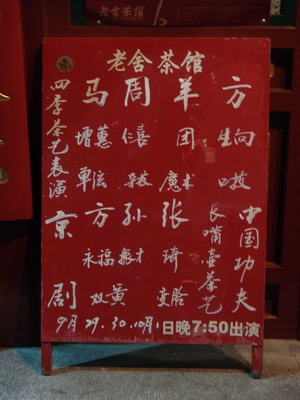 老舍茶馆
四季茶艺表演
马增蕙
单弦
周
羊团
魔术
方
京剧
方永福
孙振才
双黄
张琦
变脸
长嘴壶茶艺
中国功夫
9月29.30.10月1日晚7:50出演